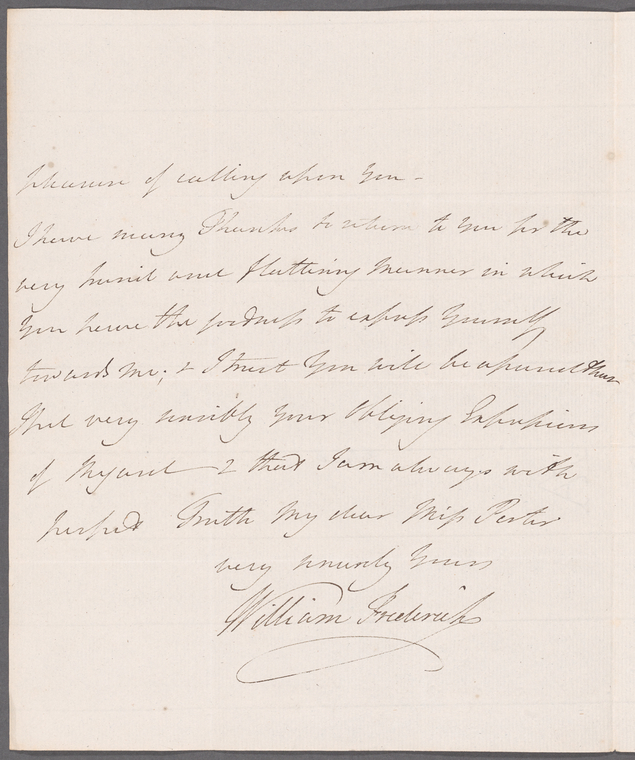 pleasure of calling upon You –
I have many Thanks to return to You for the
very kind and flattering Manner in which
You have the goodness to express Yourself
towards me; & I trust You will be assured that
I feel very sensibly Your Obliging Expressions
of Regard & that I am always with
perfect Truth My dear Miss Porter
very sincerely Yours
William Frederick